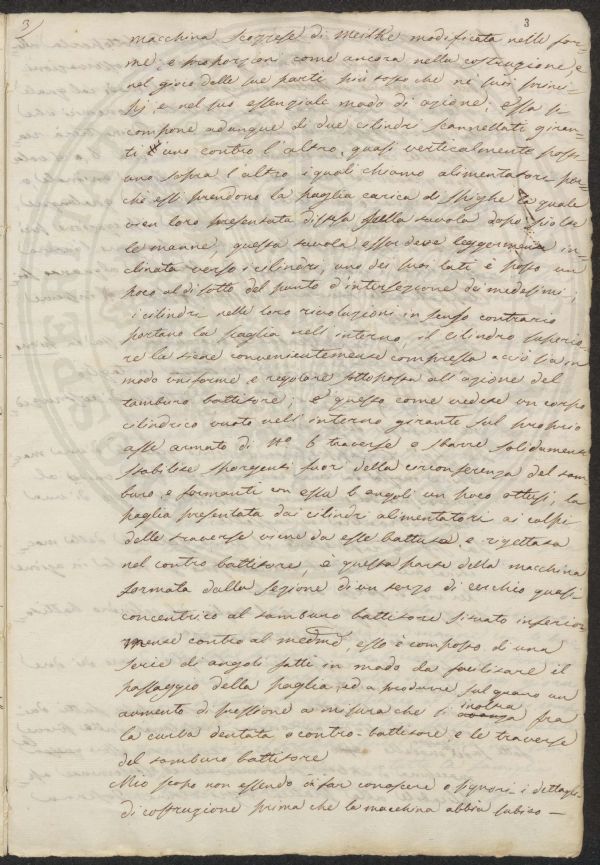 3
3
macchina Scozzese di Meikle modificata nelle for-
me, e proporzioni come ancora nella costruzione, e
nel gioco delle sue parti più tosto che ne suoi princi-
pj, e nel suo essenziale modo di azione, essa si
compone adunque di due cilindri scannellati giran-
ti uno contro l'altro, quasi verticalmente posti
uno sopra l'altro i quali chiamo alimentatori per-
che essi prendono la paglia carica di spighe la quale
vien loro presentata distesa sulla tavola dopo sciolte
le manne, questa tavola esser deve leggermente in-
clinata verso i cilindri, uno dei suoi lati è posto un
poco al di sotto del punto d'intersezione dei medesimi;
i cilindri nelle loro rivoluzioni in senso contrario
portano la paglia nell'interno, il cilindro superio
re la tiene convenientemente compressa acciò sia in
modo uniforme, e regolare sottoposta all'azione del
tamburo battitore; è questo come vedete un corpo
cilindrico vuoto nell'interno girante sul proprio
asse armato di n.o 6 traverse o sbarre solidamente
stabilite sporgenti fuori della circonferenza del tam
buro, e formanti con essa 6 angoli un poco ottusi, la
paglia presentata dai cilindri alimentatori ai colpi
delle traverse viene da esse battuta e rigettata
nel contro battitore, è questa parte della macchina
formata dalla sezione di un terzo di cerchio quasi
concentrico al tamburo battitore situato inferior
mente contro al medmo, esso è composto di una
serie di angoli fatti in modo da facilitare il
passaggio della paglia, ed a produrre sul grano un
aumento di pressione a misura che s'inoltra fra
la curba dentata o contro-battitore, e le traverse
del tamburo battitore
Mio scopo non essendo di far conoscere o Signori i dettagli
di costruzione prima che la macchina abbia subito